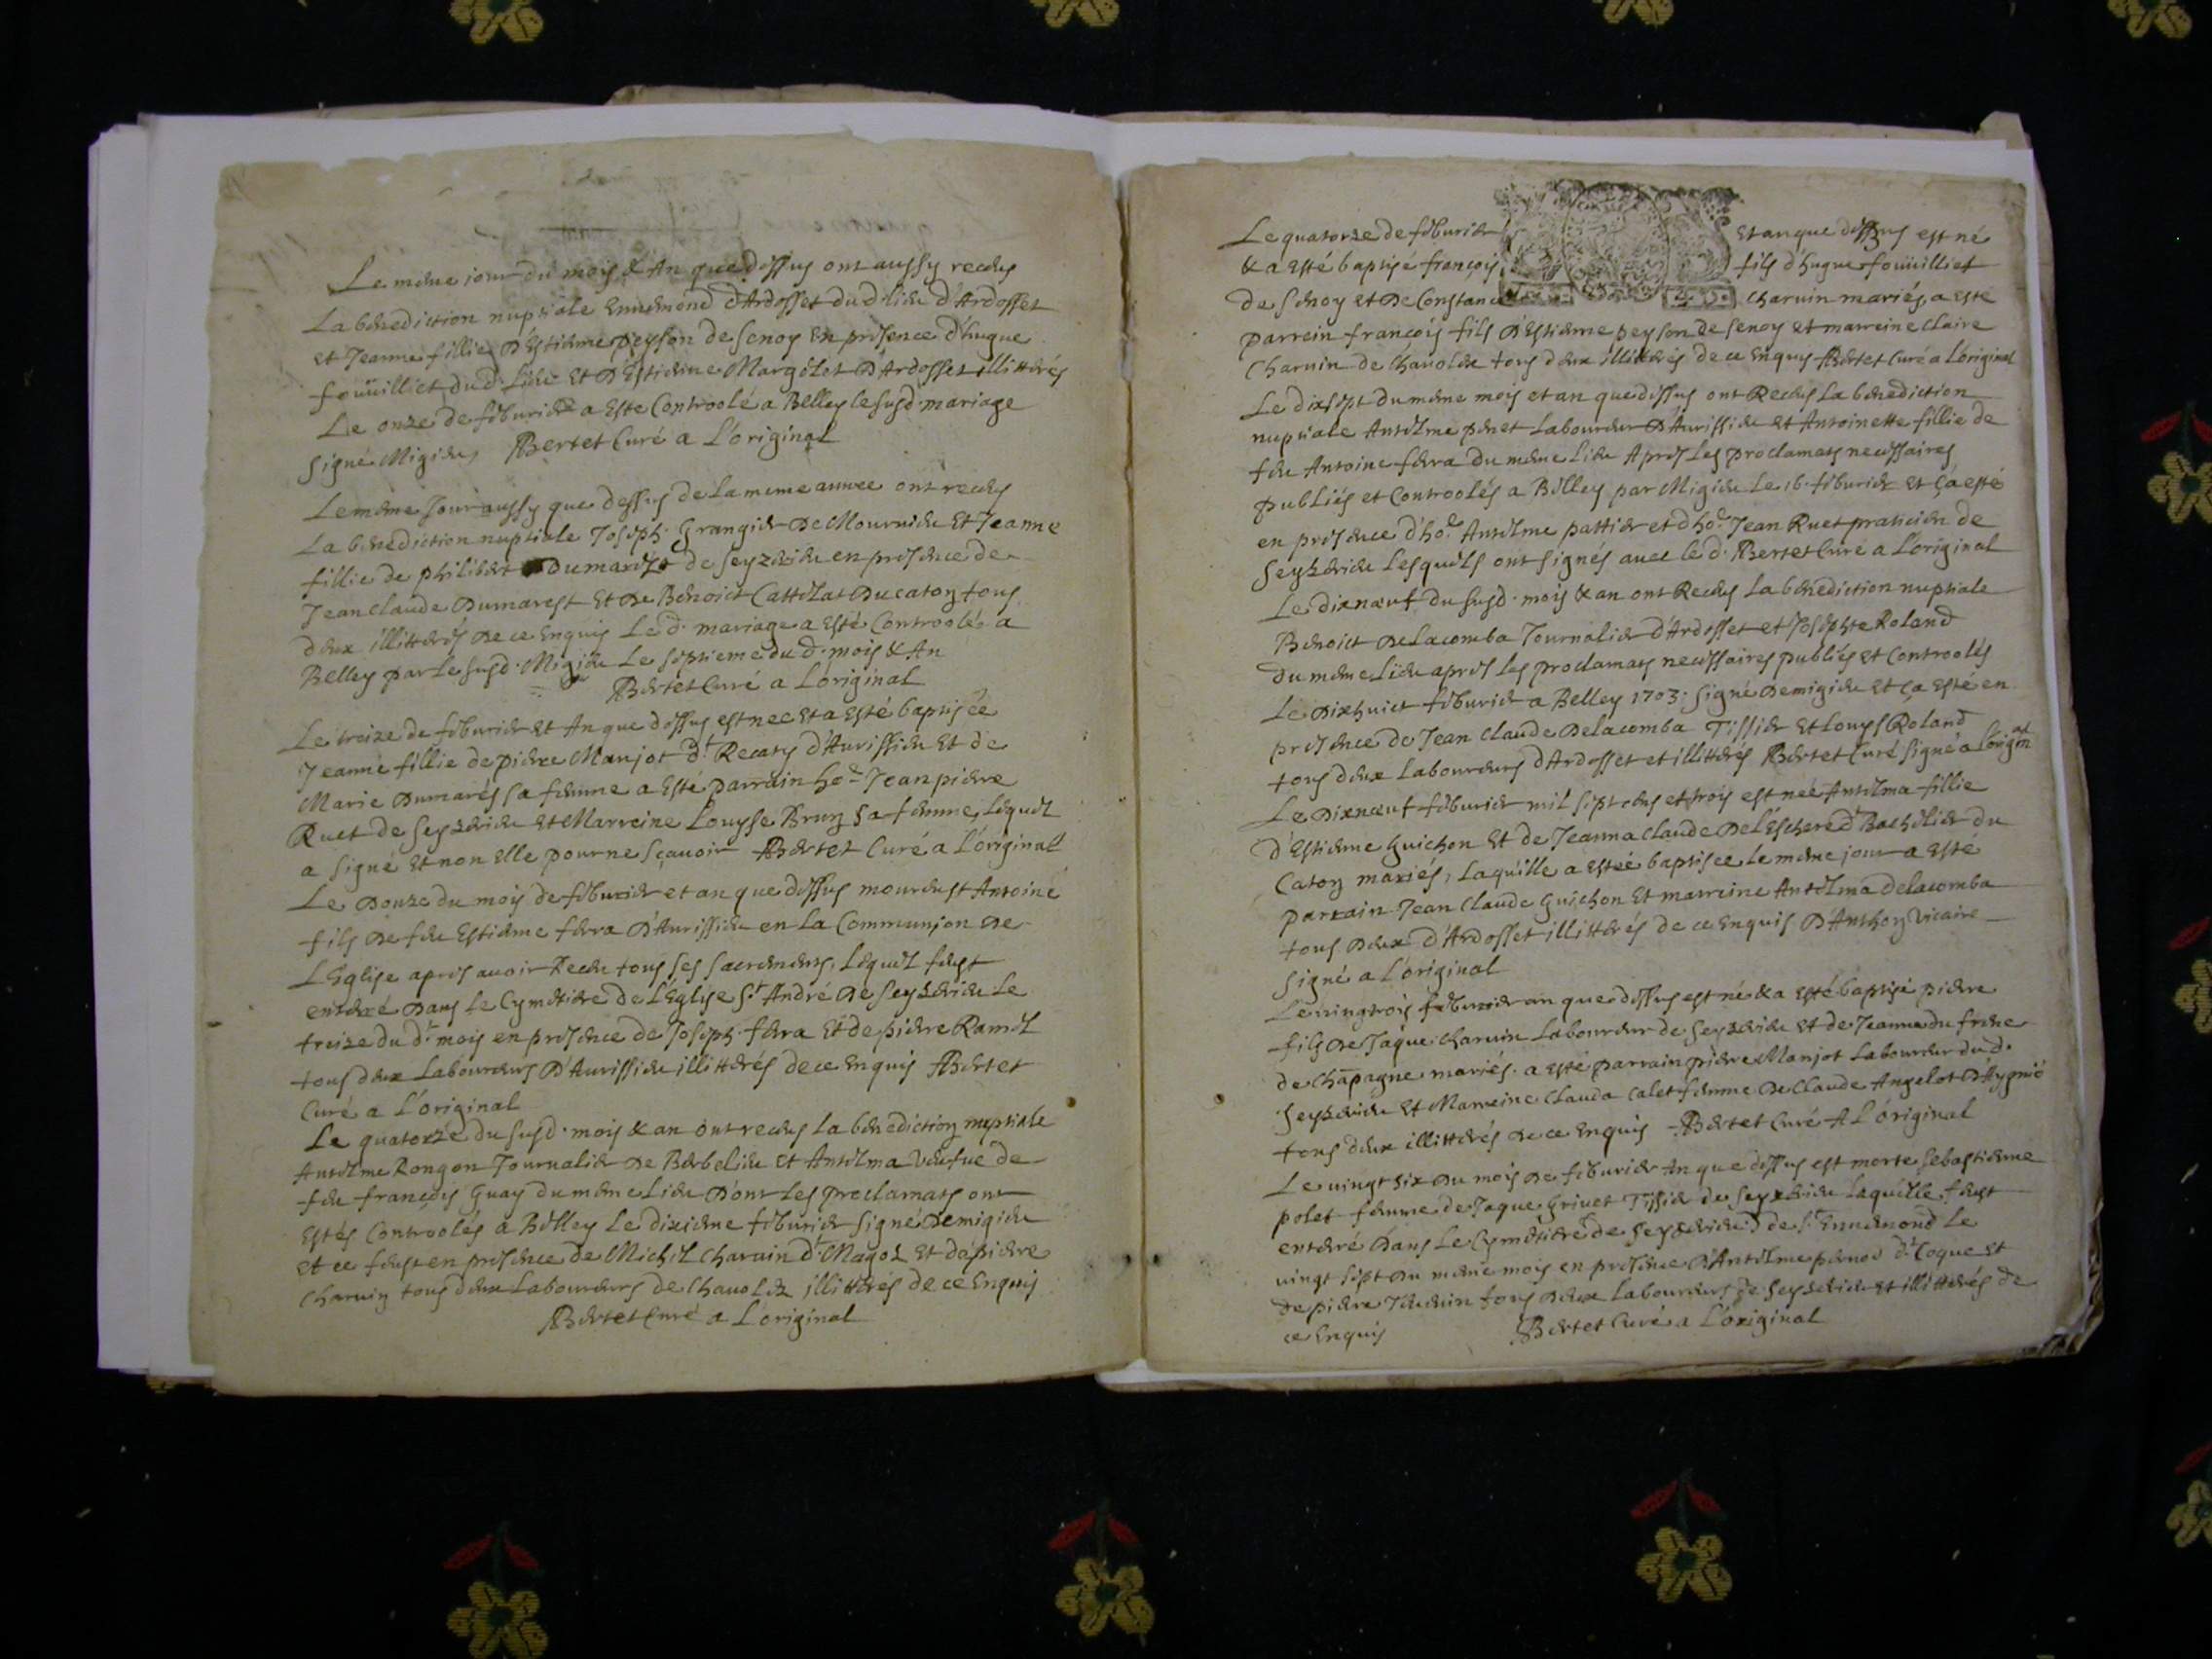 Le meme iour du mois & An que dessus ont aussy receus
La benediction nuptiale Ennemond d'Ardosset dudit lieu d'Ardosset
et Jeanne fillie d'Estienne peyson de senoy en presence d'hugue
fouuilliet du d. lieu et d'Estienne Margolot d'Ardosset illitterés
Le onze de feburier a Este Controolé a Belley le susd. mariage
signé Migieu, Bertet Curé a L'original
Le meme Jour aussy que dessus de la meme annee ont receus
La benediction nuptiale Joseph Grangier de Mournieu Et Jeanne
fillie de philibert Dumarest de seyzerieu en presence de
Jean Claude Dumarest Et de Benoict Cattelat Du caton tous
deux illitterés de ce Enquis Le d. mariage a Esté Controolés a
Belley par le susd. Migieu Le septieme du d. mois & An
Bertet Curé a L'original
Le treize de feburier Et An que dessus est nee et a Esté baptisée
Jeanne fillie de pierre Manjot dt Recary d'Aurissieu Et de
Marie Dumarés sa femme a Esté parrain ho.e Jean pierre
Ruet de seyzerieu Et Marreine Louyse Brun sa femme, Lequel
a signé Et non elle pour ne sçauoir Bertet Curé a L'original
Le Douze du mois de feburier et an que dessus mourust Antoine
fils de feu Estienne ferra d'Aurissieu en La Communion de
L'Eglise apres auoir Receu tous ses sacremens, Lequel feust
enterré Dans Le Cymetiere de L'Eglise St André de seyzerieu Le
treize du dt mois en presence de Joseph ferra Et de pierre Ramel
tous deux Laboureurs d'Aurissieu illitterés de ce Enquis Bertet
Curé a L'original
Le quatorze du susd. mois & an ont receus la benediction nuptiale
Antelme Rongon Journalier de Barbelieu et Antelma veufue de
feu françois Guay du meme Lieu D'ont Les proclamats ont
Estés Controolés a Belley Le dixieme feburier signé Demigieu
et ce feust en presence de Michel Charuin dt Magot Et de pierre
Charuin tous deux Laboureurs de Chauolex illitterés de ce Enquis
Bertet Curé a L'original
Le quatorze de feburier Et an que dessus est né
& a Esté baptisé françois fils d'hugue fouuilliet
de senoy Et De Constance Charuin mariés, a este
parrein françois fils d'Estienne peyson de senoy et marreine Claire
Charuin de Chauolex tous deux illitterés de ce Enquis Bertet Curé a L'original
Le dixsept du meme mois et an que dessus ont Receus La benediction
nuptiale Antelme penet Laboureur D'Aurissieu Et Antoinette fillie de
feu Antoine ferra du meme Lieu Apres Les proclamats necessaires
publiés et Controolés a Belley par Migieu Le 16. feburier Et ça esté
en presence d'ho.e Antelme pattier et d'ho.e Jean Ruet praticien de
seyzerieu Lesquels ont signés auec le d. Bertet Curé a L'original
Le dixneuf du susd. mois & an ont Receus La benediction nuptiale
Benoict Delacomba Journalier d'Ardosset et Josephte Roland
du meme Lieu apres les proclamats necessaires publiés et Controolés
Le Dixhuict feburier a Belley 1703. signé Demigieu Et ça Esté en
presence de Jean Claude Delacomba Tissier Et Louys Roland
tous deux Laboureurs d'Ardosset et illitterés Bertet Curé signé a L'original
Le Dixneuf feburier mil sept cens et trois est née Antelma fillie
d'Estienne Guichon Et de Jeanna Claude Del'Eschere dt Bachelier du
Caton mariés, Laquelle a Esteé baptisee le meme jour a Este
parrain Jean Claude Guichon Et marreine Antelma Delacomba
tous Deux d'Ardosset illitterés de ce Enquis D'Anthon Vicaire
signé a L'original
Le vingtrois feburier an que dessus est né & a esté baptisé pierre
fils de Jaque Charuin Laboureur de seyzerieu Et de Jeanna du frene
de Chāpagne mariés. a esté parrain pierre Manjot Laboureur du d.
seyzerieu Et Marreine Clauda Calet femme de Claude Angelot
tous deux illitterés de ce Enquis Bertet Curé A L'original
Le vingt six Du mois de feburier An que dessus est morte sebastienne
polet femme de Jaque Griuet Tissier de seyzerieu Laquelle feust
enterré Dans Le Cymetiere de seyzerieu de St Ennemond Le
vingt sept du meme mois en presence D'Antelme dt Coque Et
de pierre tous Deux Laboureurs de seyzerieu et illitterés de
ce Enquis Bertet Curé a L'original